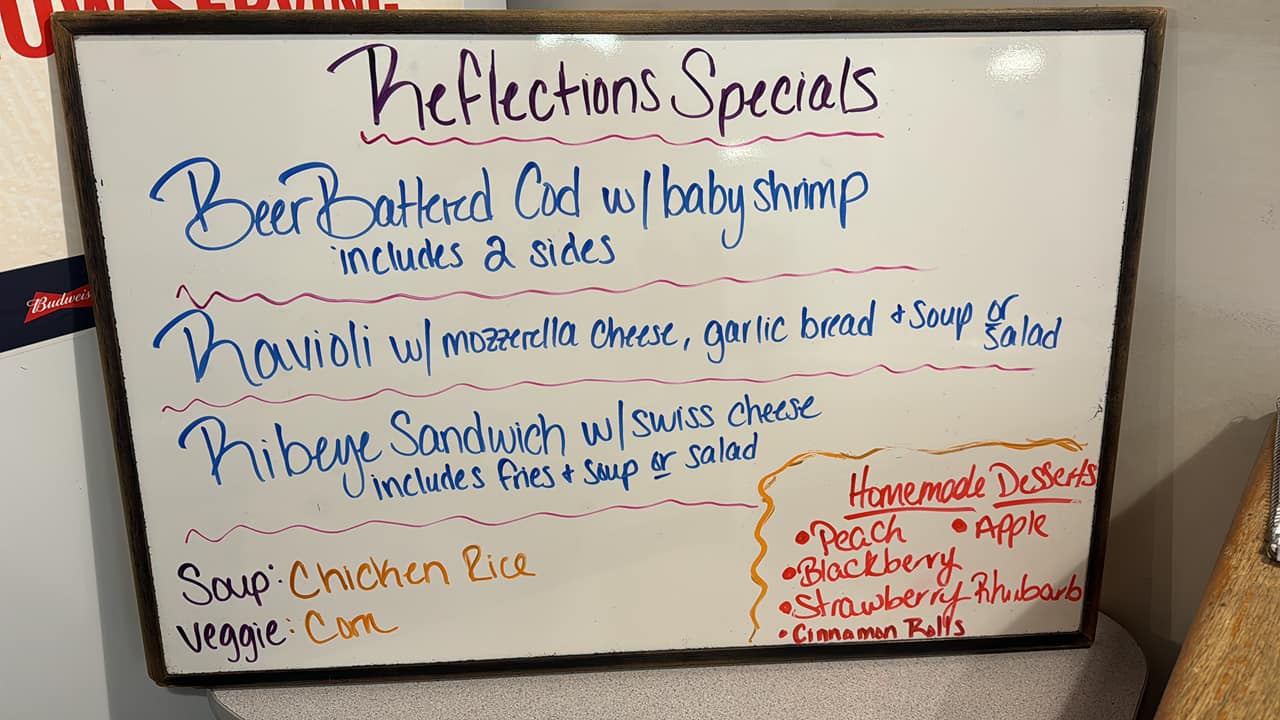 NOW SERVING
Budweis
Reflections Specials
Beer Battered Cod w/ baby shrimp
includes 2 sides
Ravioli w/ mozzerella cheese, garlic bread + soup or salad
Ribeye Sandwich w/ swiss cheese
includes fries + soup or salad
Soup: Chicken Rice
Veggie: Corn
Homemade Desserts
• Peach • Apple
• Blackberry
• Strawberry Rhubarb
• Cinnamon Rolls